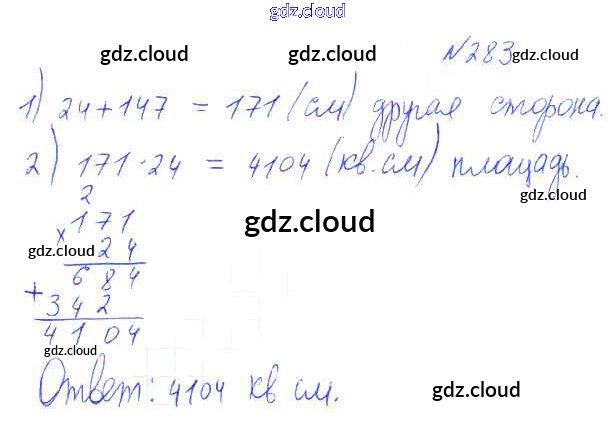 gdz.cloud
gdz.cloud gdz.cloud №283 gdz.cloud
1) 24+147 = 171 (см) другая сторона.
2) 171·24 = 4104 (кв.см) площадь.
2
× 171 gdz.cloud
gdz.cloud 24
684
+ 342
4104
gdz.cloud
Ответ: 4104 кв см. gdz.cloud